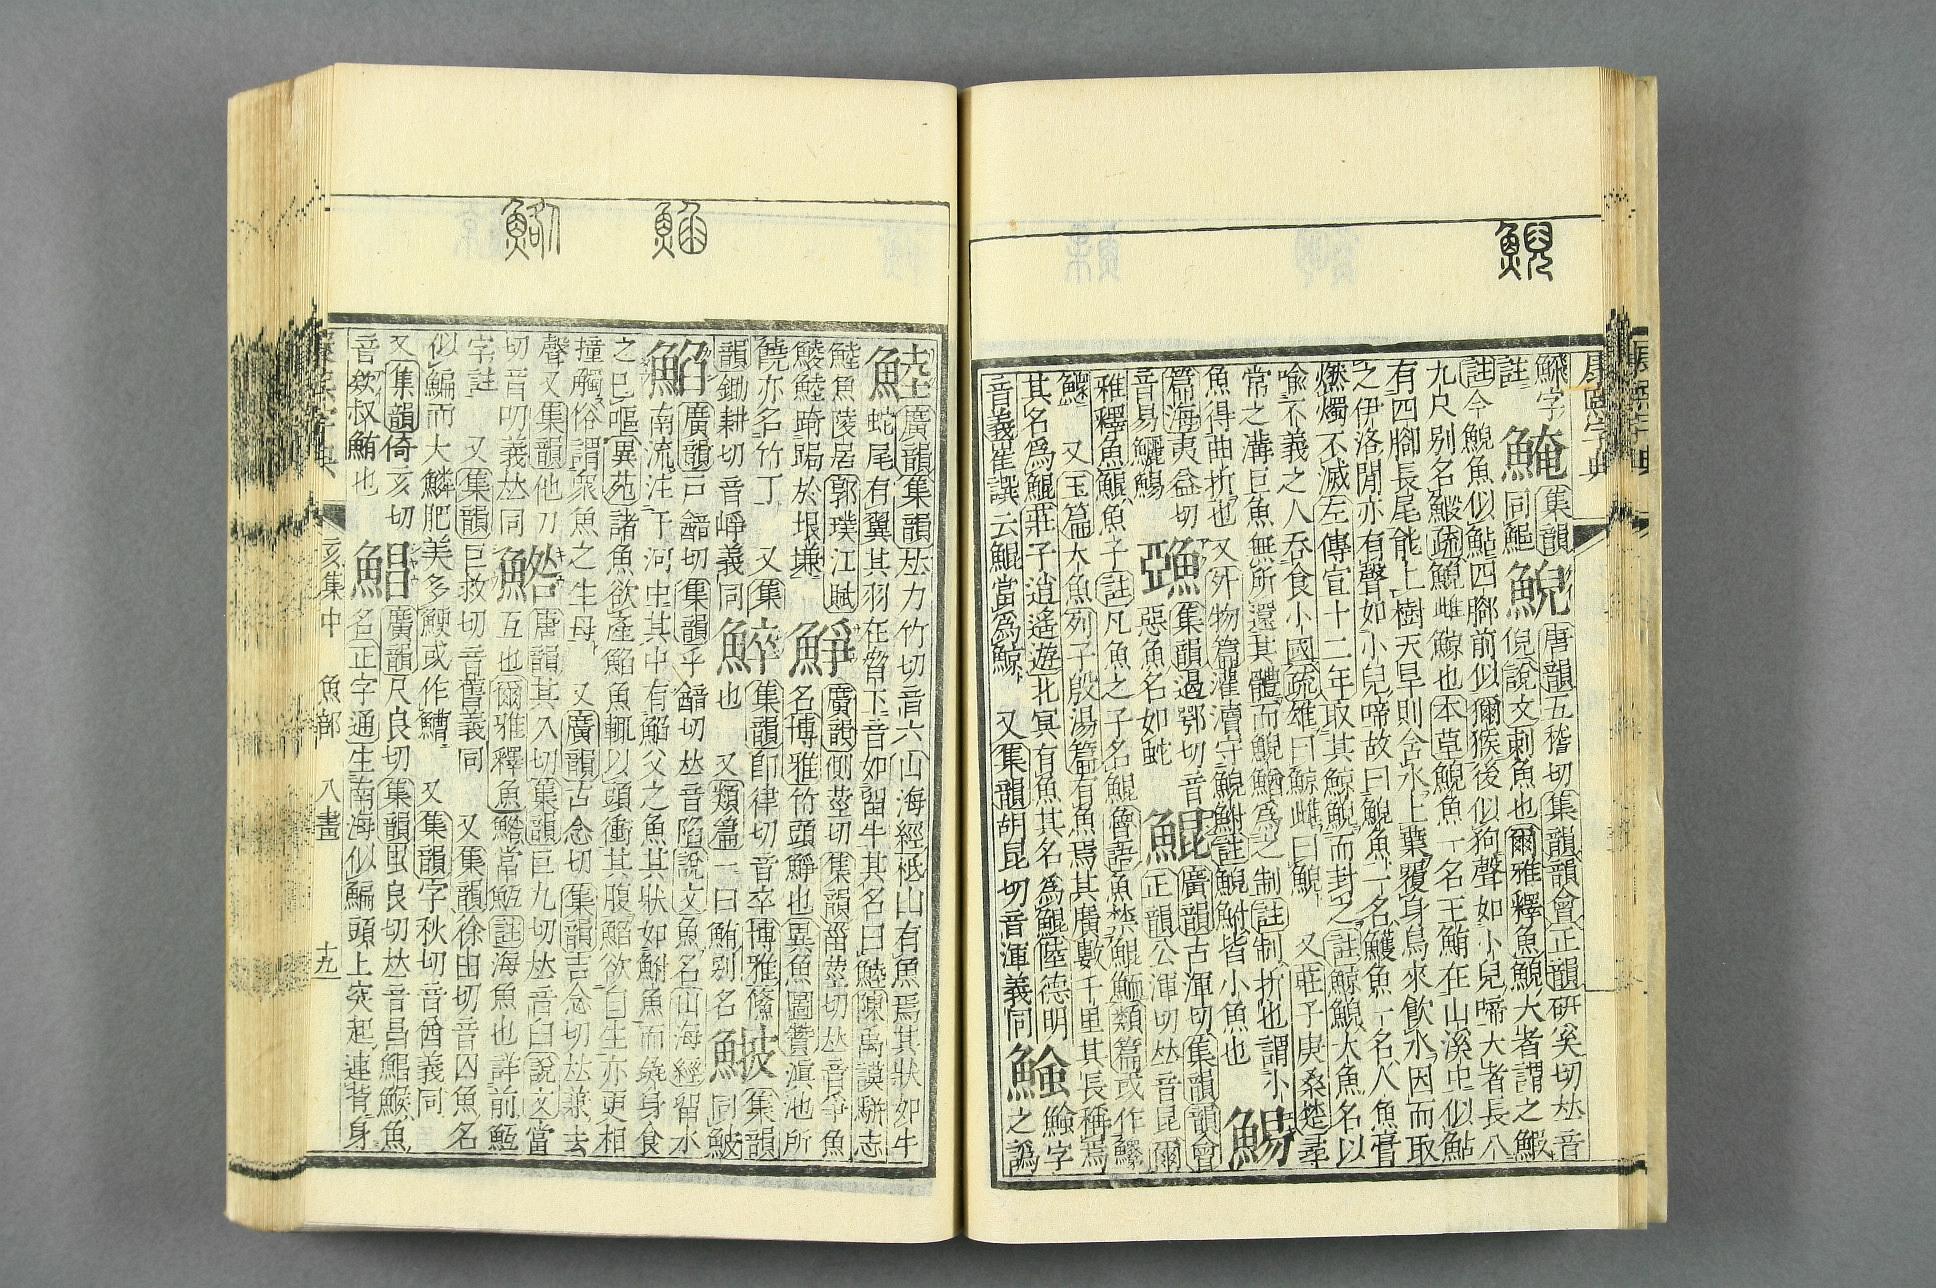 鯢
康熙字典
鯫字註 䱋 集韻同鰛 鯢 唐韻五稽切集韻韻會正韻硏奚切𠀤音
倪說文刺魚也爾雅釋魚鯢大者謂之鰕
註今鯢魚似鮎四腳前似獼猴後似狗聲如小兒啼大者長八
九尺别名鰕疏鯢雌鯨也本草鯢魚一名王鮪在山溪中似鮎
有四腳長尾能上樹天旱則含水上葉覆身鳥來飮水因而取
之伊洛閒亦有聲如小兒啼故曰鯢魚一名鱯魚一名人魚膏
燃燭不滅左傳宣十二年取其鯨鯢而封之註鯨鯢大魚名以
喩不義之人吞食小國疏雄曰鯨雌曰鯢 又莊子庚桑楚尋
常之溝巨魚無所還其體而鯢鰌爲之制註制折也謂小
魚得曲折也又外物篇灌瀆守鯢鮒註鯢鮒皆小魚也 鯣
篇海夷益切
音易鱺鯣 䱮 集韻遏鄂切音
惡魚名如蛇 鯤 廣韻古渾切集韻韻會
正韻公渾切𠀤音昆爾
雅釋魚鯤魚子註凡魚之子名鯤魯語魚禁鯤鮞類篇或作鰥
鱞 又玉篇大魚列子殷湯篇有魚焉其廣數千里其長稱焉
其名爲鯤莊子逍遙遊北冥有魚其名爲鯤陸德明
音義崔譔云鯤當爲鯨 又集韻胡昆切音渾義同 鯩字
之譌
鯥 廣韻集韻𠀤力竹切音六山海經柢山有魚焉其狀如牛
蛇尾有翼其羽在魼下音如留牛其名曰鯥陳禹謨騈志
鯥魚陵居郭璞江賦
鯪鯥踦䠇於垠隒 䱢 廣韻側莖切集韻甾莖切𠀤音爭魚
名博雅竹頭䱢也異魚圖贊滇池所
饒亦名竹丁 又集
韻鋤耕切音崢義同 䱣 集韻卽律切音卒博雅䱣
也 又類篇一曰鮪别名 集韻
同鮍
鮨 廣韻戸䤘切集韻乎䤘切𠀤音陷說文魚名山海經留水
南流注于河中其中有䱤父之魚其狀如鮒魚而彘身食
之已嘔異苑諸魚欲產䱤魚輒以頭衝其腹䱤欲自生亦更相
撞觸俗謂衆魚之生母 又廣韻古念切集韻吉念切𠀤兼去
聲又集韻他刀
切音叨義𠀤同 鯦 唐韻其久切集韻巨九切𠀤音臼說文當
互也爾雅釋魚鯦當魱註海魚也詳前魱
字註 又集韻巨救切音舊義同 又集韻徐由切音囚魚名
似鯿而大鱗肥美多鯁或作鰽 又集韻字秋切音酋義同
又集韻倚亥切
音欸叔鮪也 鯧 廣韻尺良切集韻蚩良切𠀤音昌鯧鯸魚
名正字通生南海似鯿頭上突起連背身
亥集中 魚部 八畫 十九